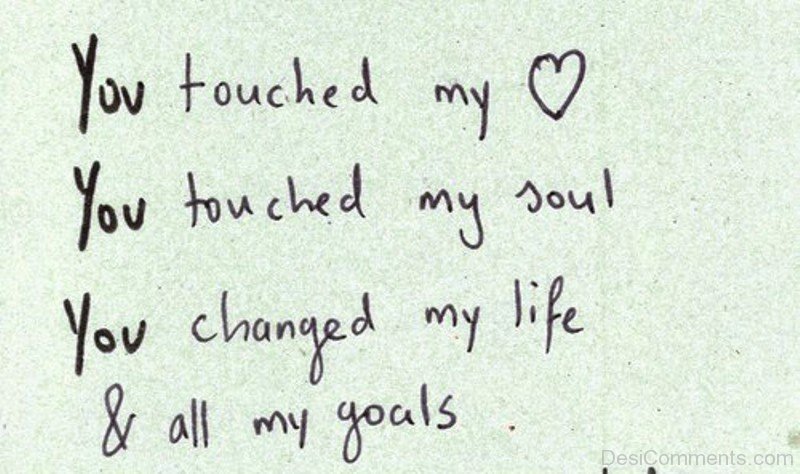 You touched my ♡
You touched my soul
You changed my life
& all my goals
DesiComments.com